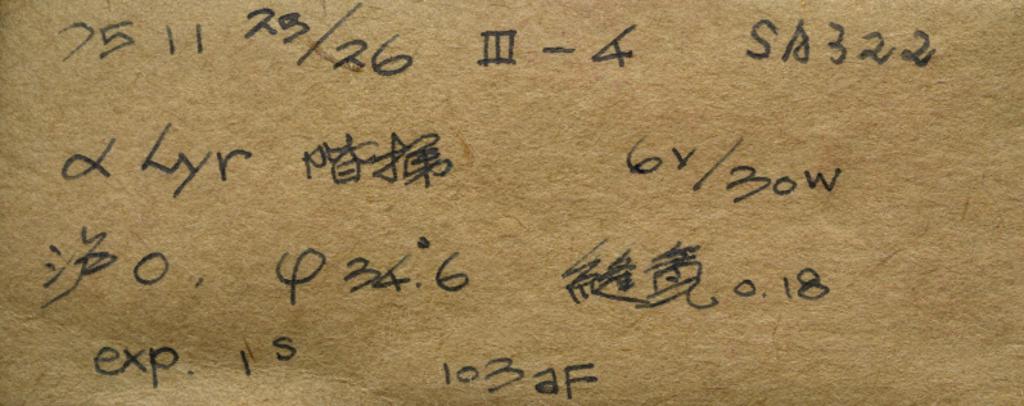 75 11 25/26 Ⅲ-4 SA322
α Lyr 階梯 6V/30W
沪0. φ 34°.6 縫寬 0.18
exp. 1s 103aF